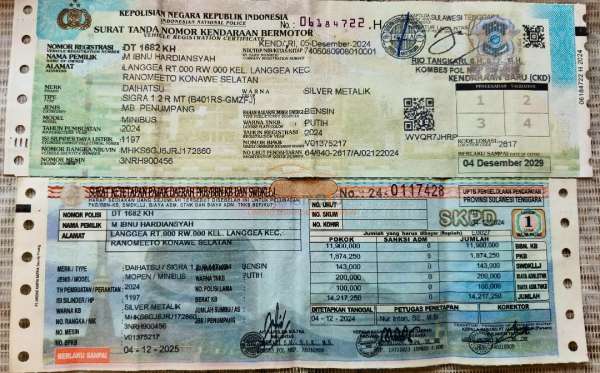 KEPOLISIAN NEGARA REPUBLIK INDONESIA
INDONESIAN NATIONAL POLICE
No.: 06184722.H
SURAT TANDA NOMOR KENDARAAN BERMOTOR
VEHICLE REGISTRATION CERTIFICATE
SULAWESI TENGGARA
KENDARI, 05 Desember 2024
NOMOR REGISTRASI DT 1682 KH
NAMA PEMILIK M IBNU HARDIANSYAH
ALAMAT LANGGEA RT 000 RW 000 KEL. LANGGEA KEC.
RANOMEETO KONAWE SELATAN
RIO TANGKARI
KOMBES POL
KENDARAAN BARU (CKD)
MERK DAIHATSU
WARNA SILVER METALIK
TIPE SIGRA 1.2 R MT (B401RS-GMZFJ)
JENIS MB. PENUMPANG
BENSIN
MODEL MINIBUS
WARNA TNKB PUTIH
TAHUN PEMBUATAN 2024
TAHUN REGISTRASI 2024
1197
NOMOR BPKB V01375217
NOMOR RANGKA MHKS6GJ6JRJ172860
64/640-2617/A/02122024
NOMOR MESIN 3NRH900456
WVQR7JHRP
1 2
3 4
KODE LOKASI 2617
BERLAKU SAMPAI
04 Desember 2029
06184722 H 2024
SURAT KETETAPAN PAJAK DAERAH PKB/BBN-KB DAN SWDKLLJ
No.: 24. 0117428
UPTB PENYELOLAAN PENDAPATAN
PROVINSI SULAWESI TENGGARA
NOMOR POLISI DT 1682 KH
NAMA PEMILIK M IBNU HARDIANSYAH
ALAMAT LANGGEA RT 000 RW 000 KEL. LANGGEA KEC.
RANOMEETO KONAWE SELATAN
NO. URUT
NO. SKUM
NO. KOHIR
SKPD
1
Jumlah yang harus dibayar (Rupiah)
POKOK SANKSI ADM JUMLAH
11,900,000 0 11,900,000 BBN. KB
1,874,250 0 1,874,250 PKB
143,000 0 143,000 SWDKLLJ
200,000 0 200,000
100,000 0 100,000
14,217,250 0 14,217,250 JUMLAH
MERK / TYPE : DAIHATSU / SIGRA 1.2
BENSIN
JENIS / MODEL : MOPEN / MINIBUS
PUTIH
TH PEMBUATAN / PERAKITAN : 2024
ISI SILINDER / HP : 1197
WARNA KB : SILVER METALIK
NO. RANGKA / NIK : MHKS6GJ6JRJ172860
NO. MESIN : 3NRH900456
NO. BPKB : V01375217
NO. POLISI LAMA
BERAT KB
JUMLAH SUMBU / AS
DITETAPKAN TANGGAL PETUGAS PENETAPAN KOREKTOR
04 - 12 - 2024
Nur Intan, SE, M.Si
BERLAKU SAMPAI 04 - 12 - 2025